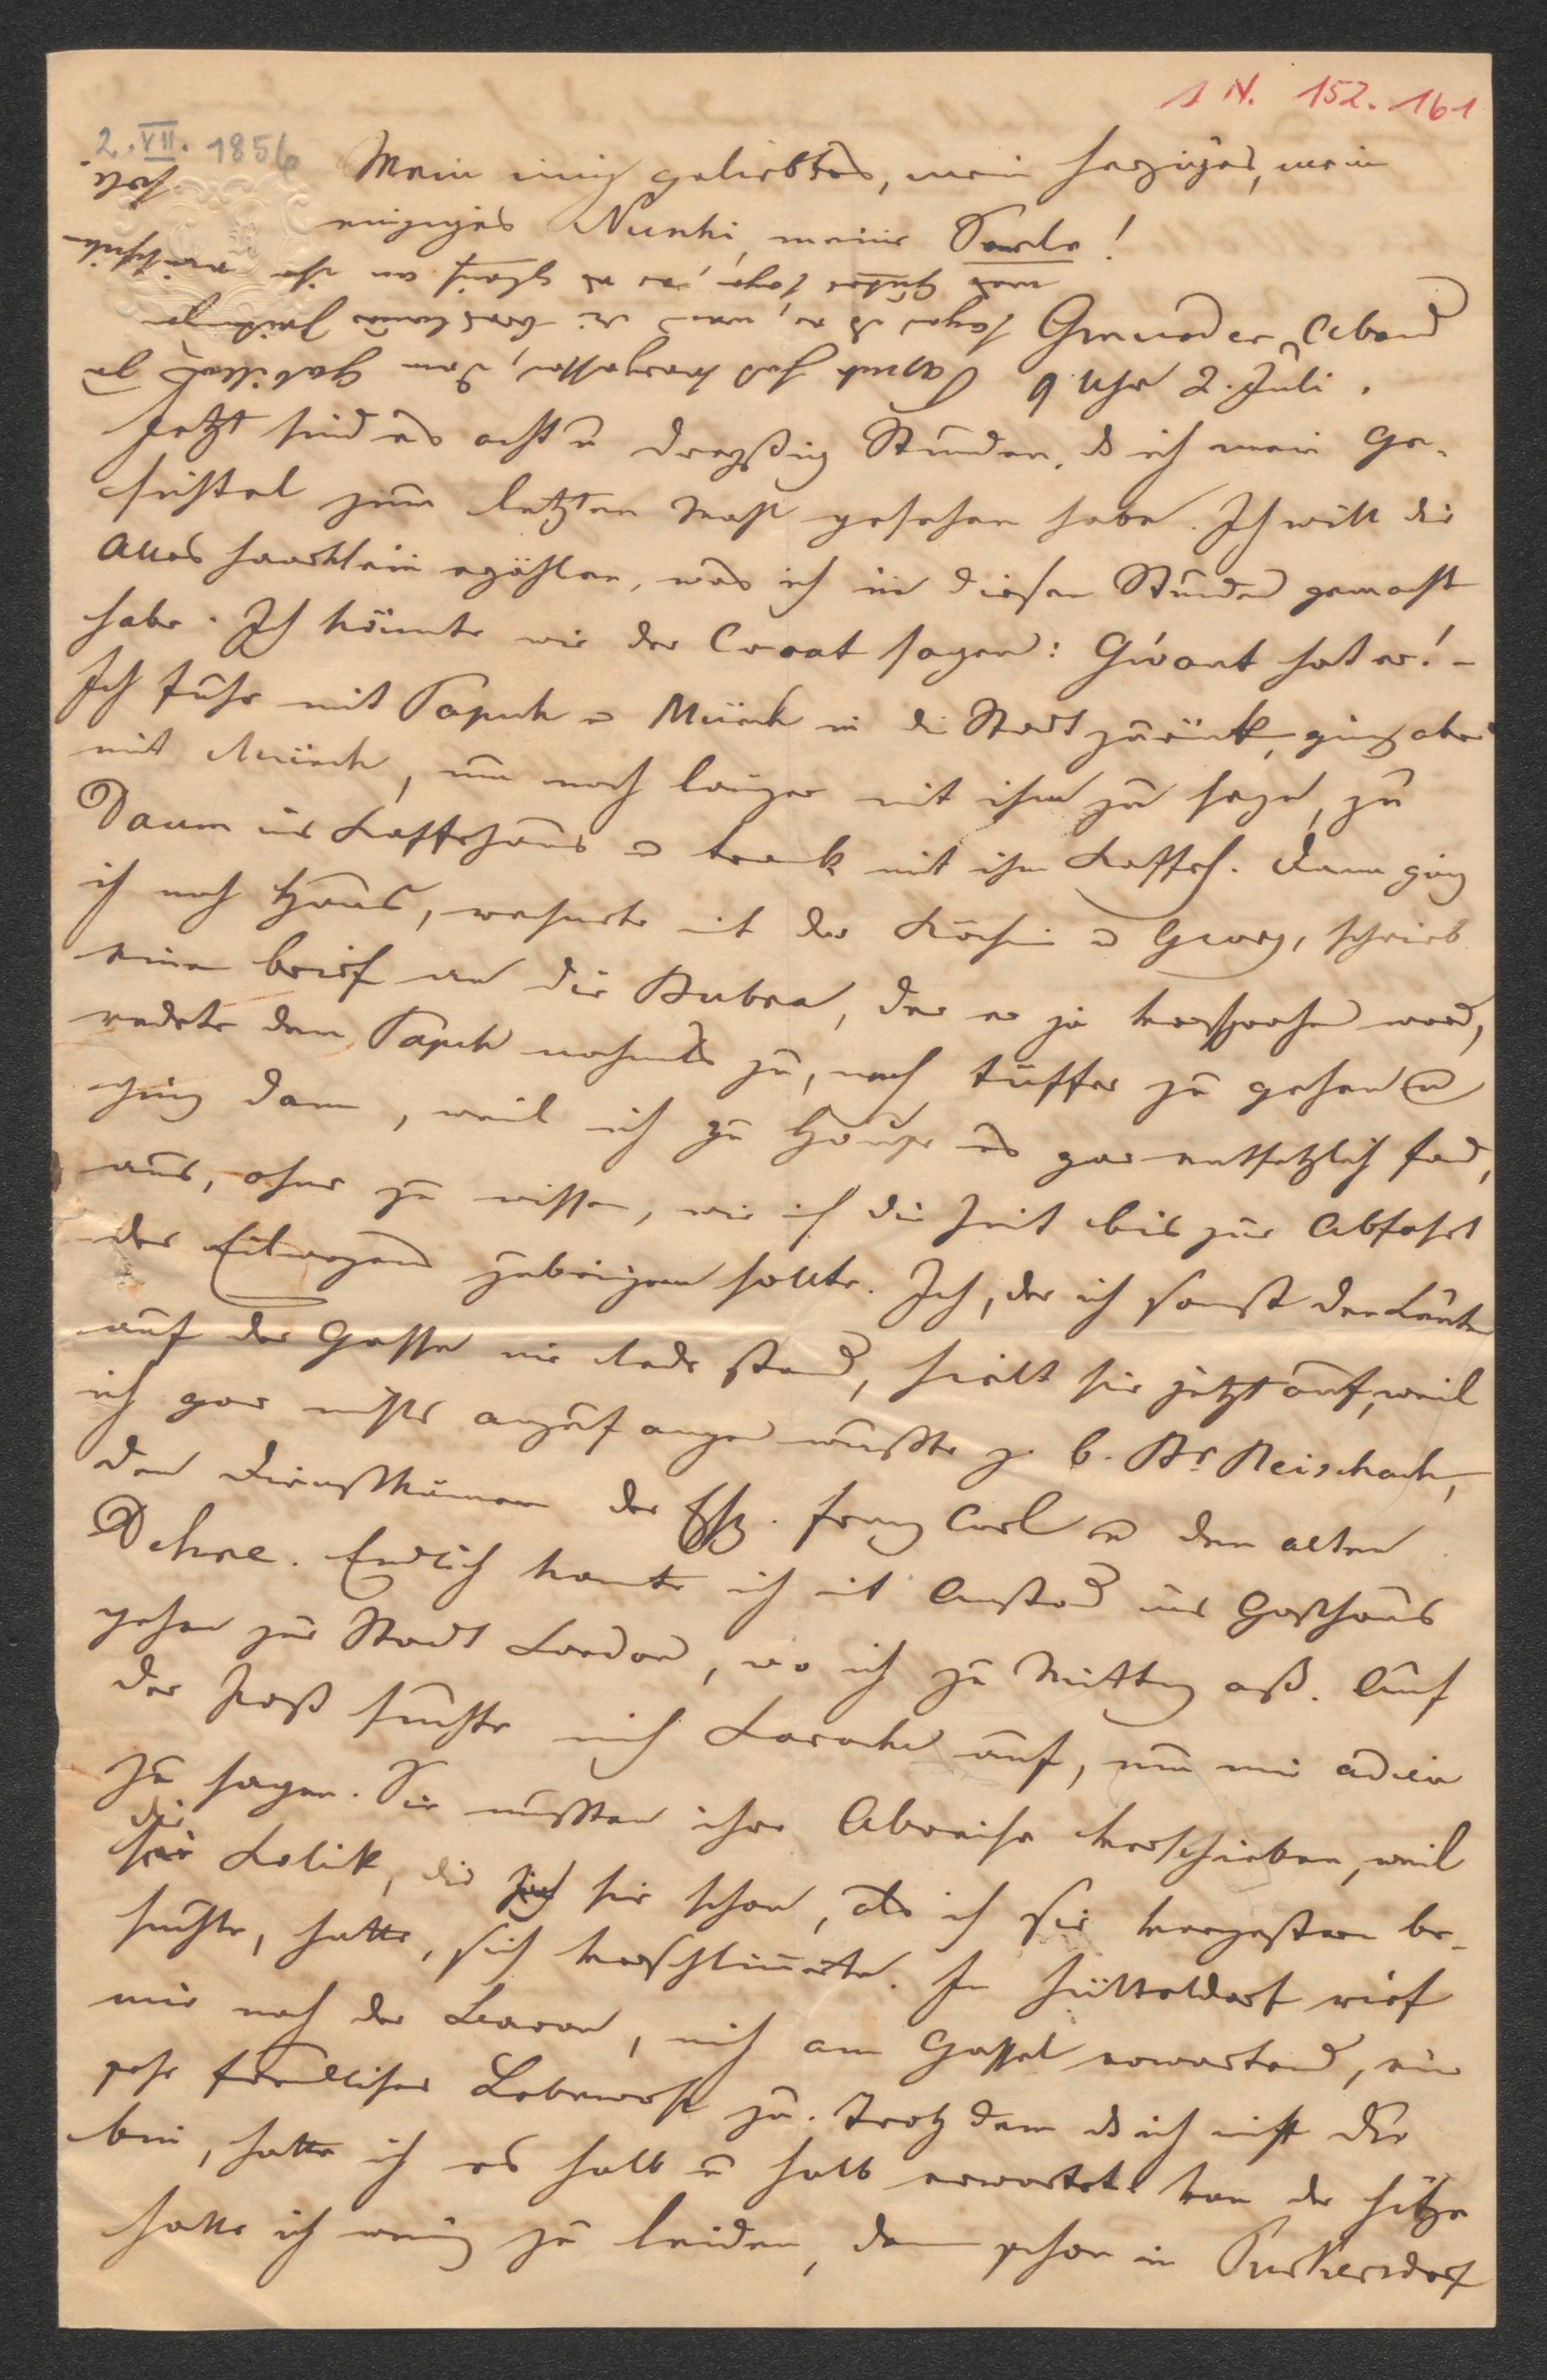 1 N. 152. 161
2. VII. 1856
Mein innig geliebtes, mein herziges, mein
einziges Nunki, meine Perle!
Gmunden Abend
9 Uhr 2. Juli.
Jetzt sind es acht u dreyßig Stunden, dß ich mein Ge-
sichtel zum letzten Mahl gesehen habe. Ich will dir
Alles haarklein erzählen, was ich in diesen Stunden gemacht
habe. Ich könnte wie der Croat sagen: G'want hat er! –
Ich fuhr mit Papuk u Münch in die Stadt zurück, ging aber
mit Münch, um noch länger mit ihm zu seyn, zu
Daum ins Kaffehaus u trank mit ihm Kaffeh. Dann ging
ich nach Haus, rechnete mit der Köchin u Georg, schrieb
einen Brief an die, der er ja versprochen war,
redete dem Papuk nochmals zu, nach Tüffer zu gehen u
ging dann, weil ich zu Hause es gar entsetzlich fand,
aus, ohne zu wissen, wie ich die Zeit bis zur Abfahrt
des Eilwagens zubringen sollte. Ich, der ich sonst den Leuten
auf der Gasse nie Rede stand, hielt sie jetzt auf, weil
ich gar nichts anzufangen wußte z. B. Br Reischach,
den Dienstkämmerer des Erzh. Franz Carl u den alten
Dehne. Endlich konnte ich mit Anstand ins Gasthaus
gehen zur Stadt London, wo ich zu Mittag aß. Auf
der Post suchte mich Laroche auf, um mir adieu
zu sagen. Sie mußten ihre Abreise verschieben, weil
die Kolik, die sie schon, als ich sie vorgestern be-
suchte, hatte, sich verschlimmerte. In Hütteldorf rief
mir noch der Baron, mich am Gassel erwartend, ein
sehr freundliches Lebewohl zu. Trotz dem dß ich nicht Du
bin, hatte ich es halb u halb erwartet. Von der Hitze
hatte ich wenig zu leiden, denn schon in Purkersdorf